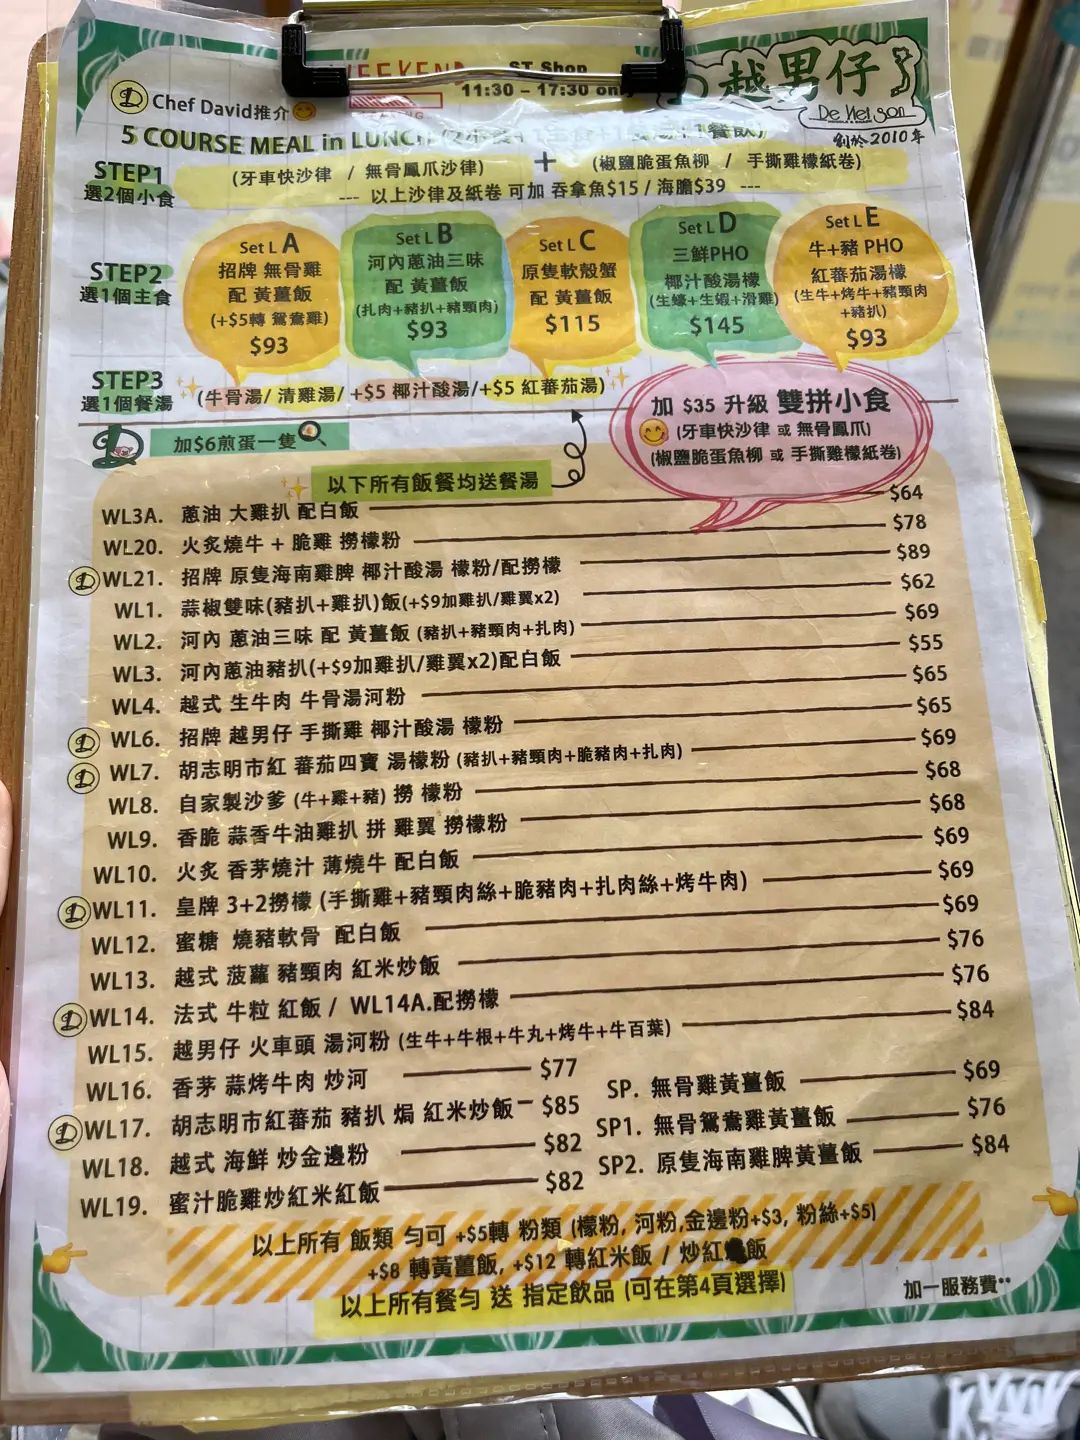 WEEKEND ST Shop
11:30 – 17:30 only
越男仔
De Nei Son
創於2010年
Chef David推介
5 COURSE MEAL in LUNCH
STEP1
選2個小食
(牙車快沙律 / 無骨鳳爪沙律) + (椒鹽脆蛋魚柳 / 手撕雞檬紙卷)
--- 以上沙律及紙卷 可加 吞拿魚$15 / 海膽$39 ---
STEP2
選1個主食
Set L A
招牌 無骨雞
配 黃薑飯
(+$5轉 鴛鴦雞)
$93
Set L B
河內蔥油三味
配 黃薑飯
(扎肉+豬扒+豬頸肉)
$93
Set L C
原隻軟殼蟹
配 黃薑飯
$115
Set L D
三鮮PHO
椰汁酸湯檬
(生蠔+生蝦+滑雞)
$145
Set L E
牛+豬 PHO
紅蕃茄湯檬
(生牛+烤牛+豬頸肉
+豬扒)
$93
STEP3
選1個餐湯
(牛骨湯/ 清雞湯/ +$5 椰汁酸湯/+$5 紅蕃茄湯)
加 $35 升級 雙拼小食
(牙車快沙律 或 無骨鳳爪)
(椒鹽脆蛋魚柳 或 手撕雞檬紙卷)
加$6煎蛋一隻
以下所有飯餐均送餐湯
WL3A. 蔥油 大雞扒 配白飯 $64
WL20. 火炙燒牛 + 脆雞 撈檬粉 $78
WL21. 招牌 原隻海南雞脾 椰汁酸湯 檬粉/配撈檬 $89
WL1. 蒜椒雙味(豬扒+雞扒)飯(+$9加雞扒/雞翼x2) $62
WL2. 河內 蔥油三味 配 黃薑飯 (豬扒+豬頸肉+扎肉) $69
WL3. 河內蔥油豬扒(+$9加雞扒/雞翼x2)配白飯 $55
WL4. 越式 生牛肉 牛骨湯河粉 $65
WL6. 招牌 越男仔 手撕雞 椰汁酸湯 檬粉 $65
WL7. 胡志明市紅 蕃茄四寶 湯檬粉 (豬扒+豬頸肉+脆豬肉+扎肉) $69
WL8. 自家製沙爹 (牛+雞+豬) 撈 檬粉 $68
WL9. 香脆 蒜香牛油雞扒 拼 雞翼 撈檬粉 $68
WL10. 火炙 香茅燒汁 薄燒牛 配白飯 $69
WL11. 皇牌 3+2撈檬 (手撕雞+豬頸肉絲+脆豬肉+扎肉絲+烤牛肉) $69
WL12. 蜜糖 燒豬軟骨 配白飯 $69
WL13. 越式 菠蘿 豬頸肉 紅米炒飯 $76
WL14. 法式 牛粒 紅飯 / WL14A.配撈檬 $76
WL15. 越男仔 火車頭 湯河粉 (生牛+牛根+牛丸+烤牛+牛百葉) $84
WL16. 香茅 蒜烤牛肉 炒河 $77
WL17. 胡志明市紅蕃茄 豬扒 焗 紅米炒飯 $85
WL18. 越式 海鮮 炒金邊粉 $82
WL19. 蜜汁脆雞炒紅米紅飯 $82
SP. 無骨雞黃薑飯 $69
SP1. 無骨鴛鴦雞黃薑飯 $76
SP2. 原隻海南雞脾黃薑飯 $84
以上所有 飯類 勻可 +$5轉 粉類 (檬粉, 河粉,金邊粉+$3, 粉絲+$5)
+$8 轉黃薑飯, +$12 轉紅米飯 / 炒紅飯
以上所有餐勻 送 指定飲品 (可在第4頁選擇)
加一服務費**